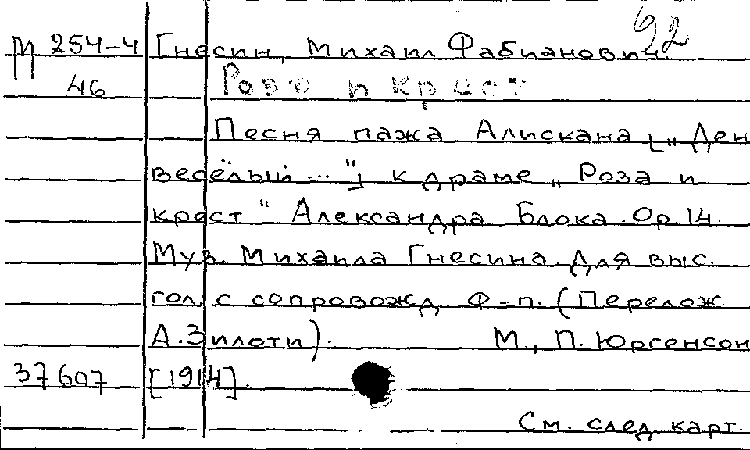 92
М 254-4 Гнесин, Михаил Фабианович.
46 Роза и крест
Песня пажа Алискана ["Ден
весёлый..."] к драме „Роза и
крест" Александра Блока. Op. 14.
Муз. Михаила Гнесина. Для выс.
гол. с сопровожд. ф-п. (Перелож.
А. Зилоти). М., П. Юргенсон
37607 [1914].
См. след. карт.